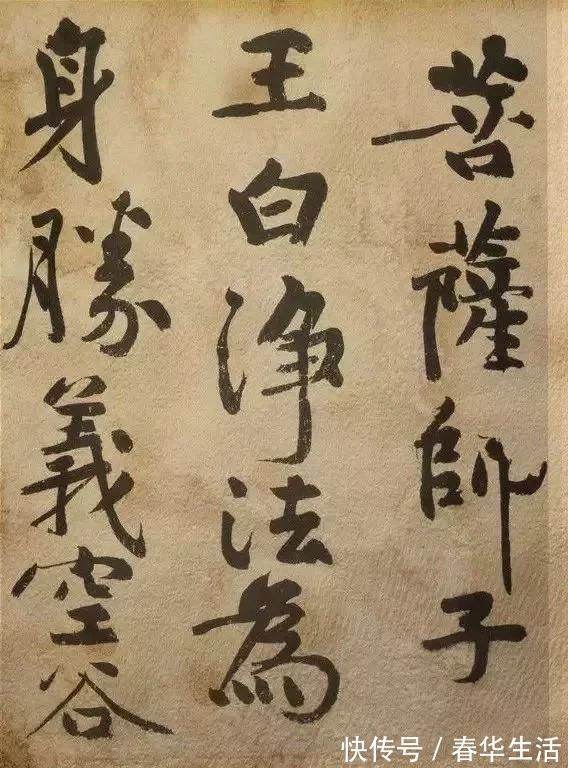 菩薩師子
王白淨法為
身勝義空谷
快传号/春华生活